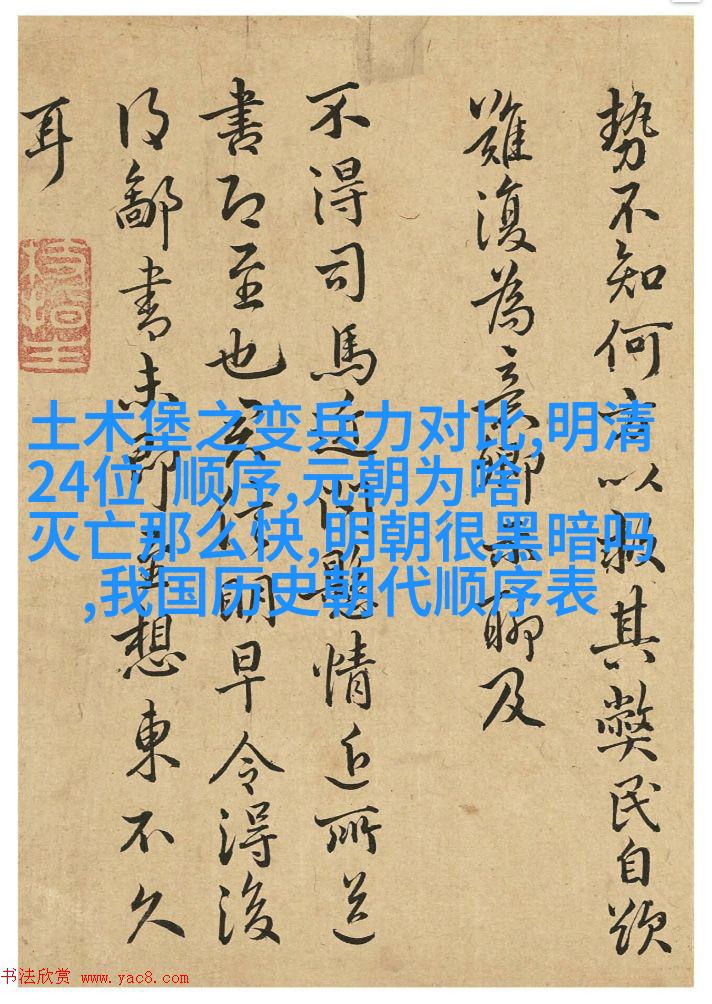 土木堡之变兵力对比,明清
24位 顺序,元朝为啥
灭亡那么快,明朝很黑暗吗
,我国历史朝代顺序表
勢不知何方以救其弊民自
難復為意卿聊及
不得司馬近問懸情近所送
書即至也得明早令得後
得鄙書未想東不久
耳
书法欣赏 www.yac8.com